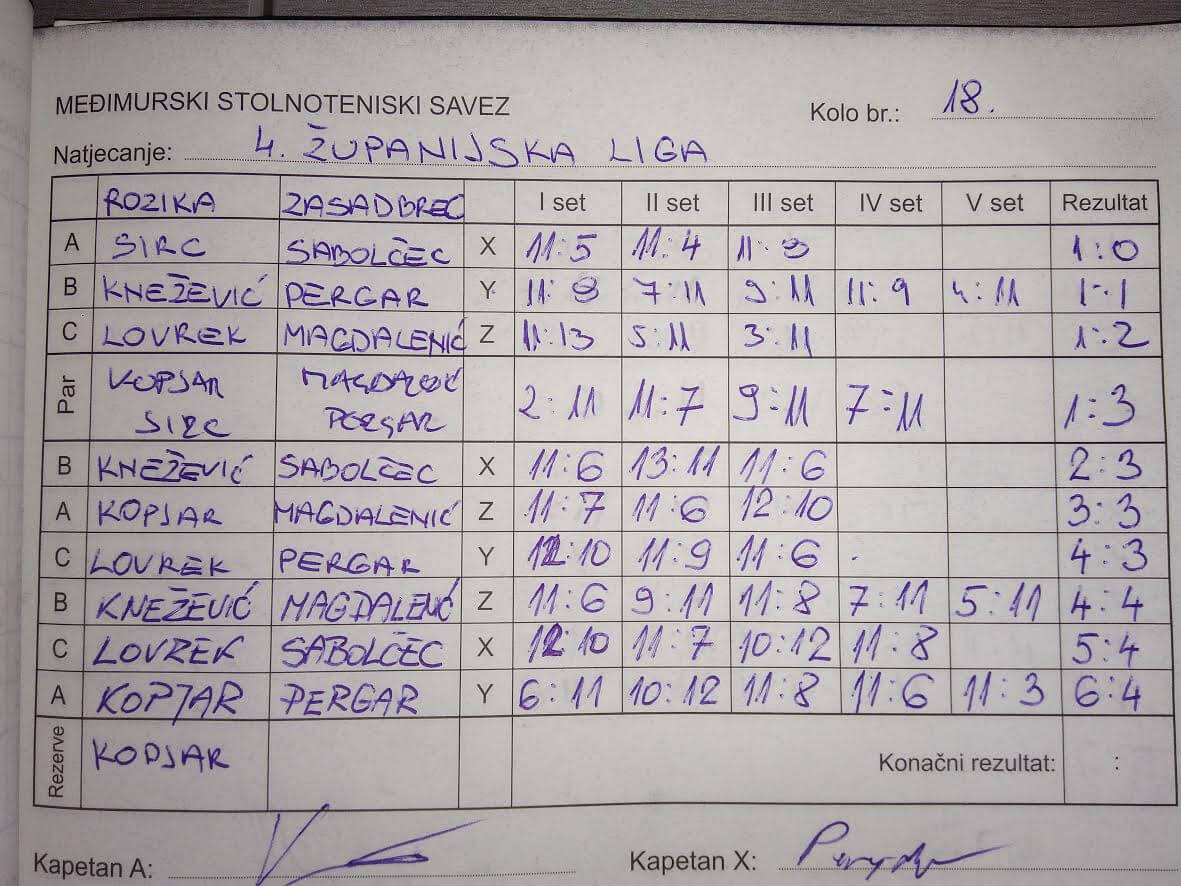 MEĐIMURSKI STOLNOTENISKI SAVEZ
Kolo br.: 18.
Natjecanje: 4. ŽUPANIJSKA LIGA
ROZIKA ZASADBREC I set II set III set IV set V set Rezultat
A SIRC SABOLČEC X 11:5 11:4 11:9 1:0
B KNEŽEVIĆ PERGAR Y 11:9 7:11 9:11 11:9 4:11 1:1
C LOVREK MAGDALENIĆ Z 11:13 5:11 3:11 1:2
Par KOPJAR 2:11 11:7 9:11 7:11 1:3
SIRC PERGAR
B KNEŽEVIĆ SABOLČEC X 11:6 13:11 11:6 2:3
A KOPJAR MAGDALENIĆ Z 11:7 11:6 12:10 3:3
C LOVREK PERGAR Y 12:10 11:9 11:6 4:3
B KNEŽEVIĆ MAGDALENIĆ Z 11:6 9:11 11:8 7:11 5:11 4:4
C LOVREK SABOLČEC X 12:10 11:7 10:12 11:8 5:4
A KOPJAR PERGAR Y 6:11 10:12 11:8 11:6 11:3 6:4
Rezerve KOPJAR Konačni rezultat: :
Kapetan A: Kapetan X: